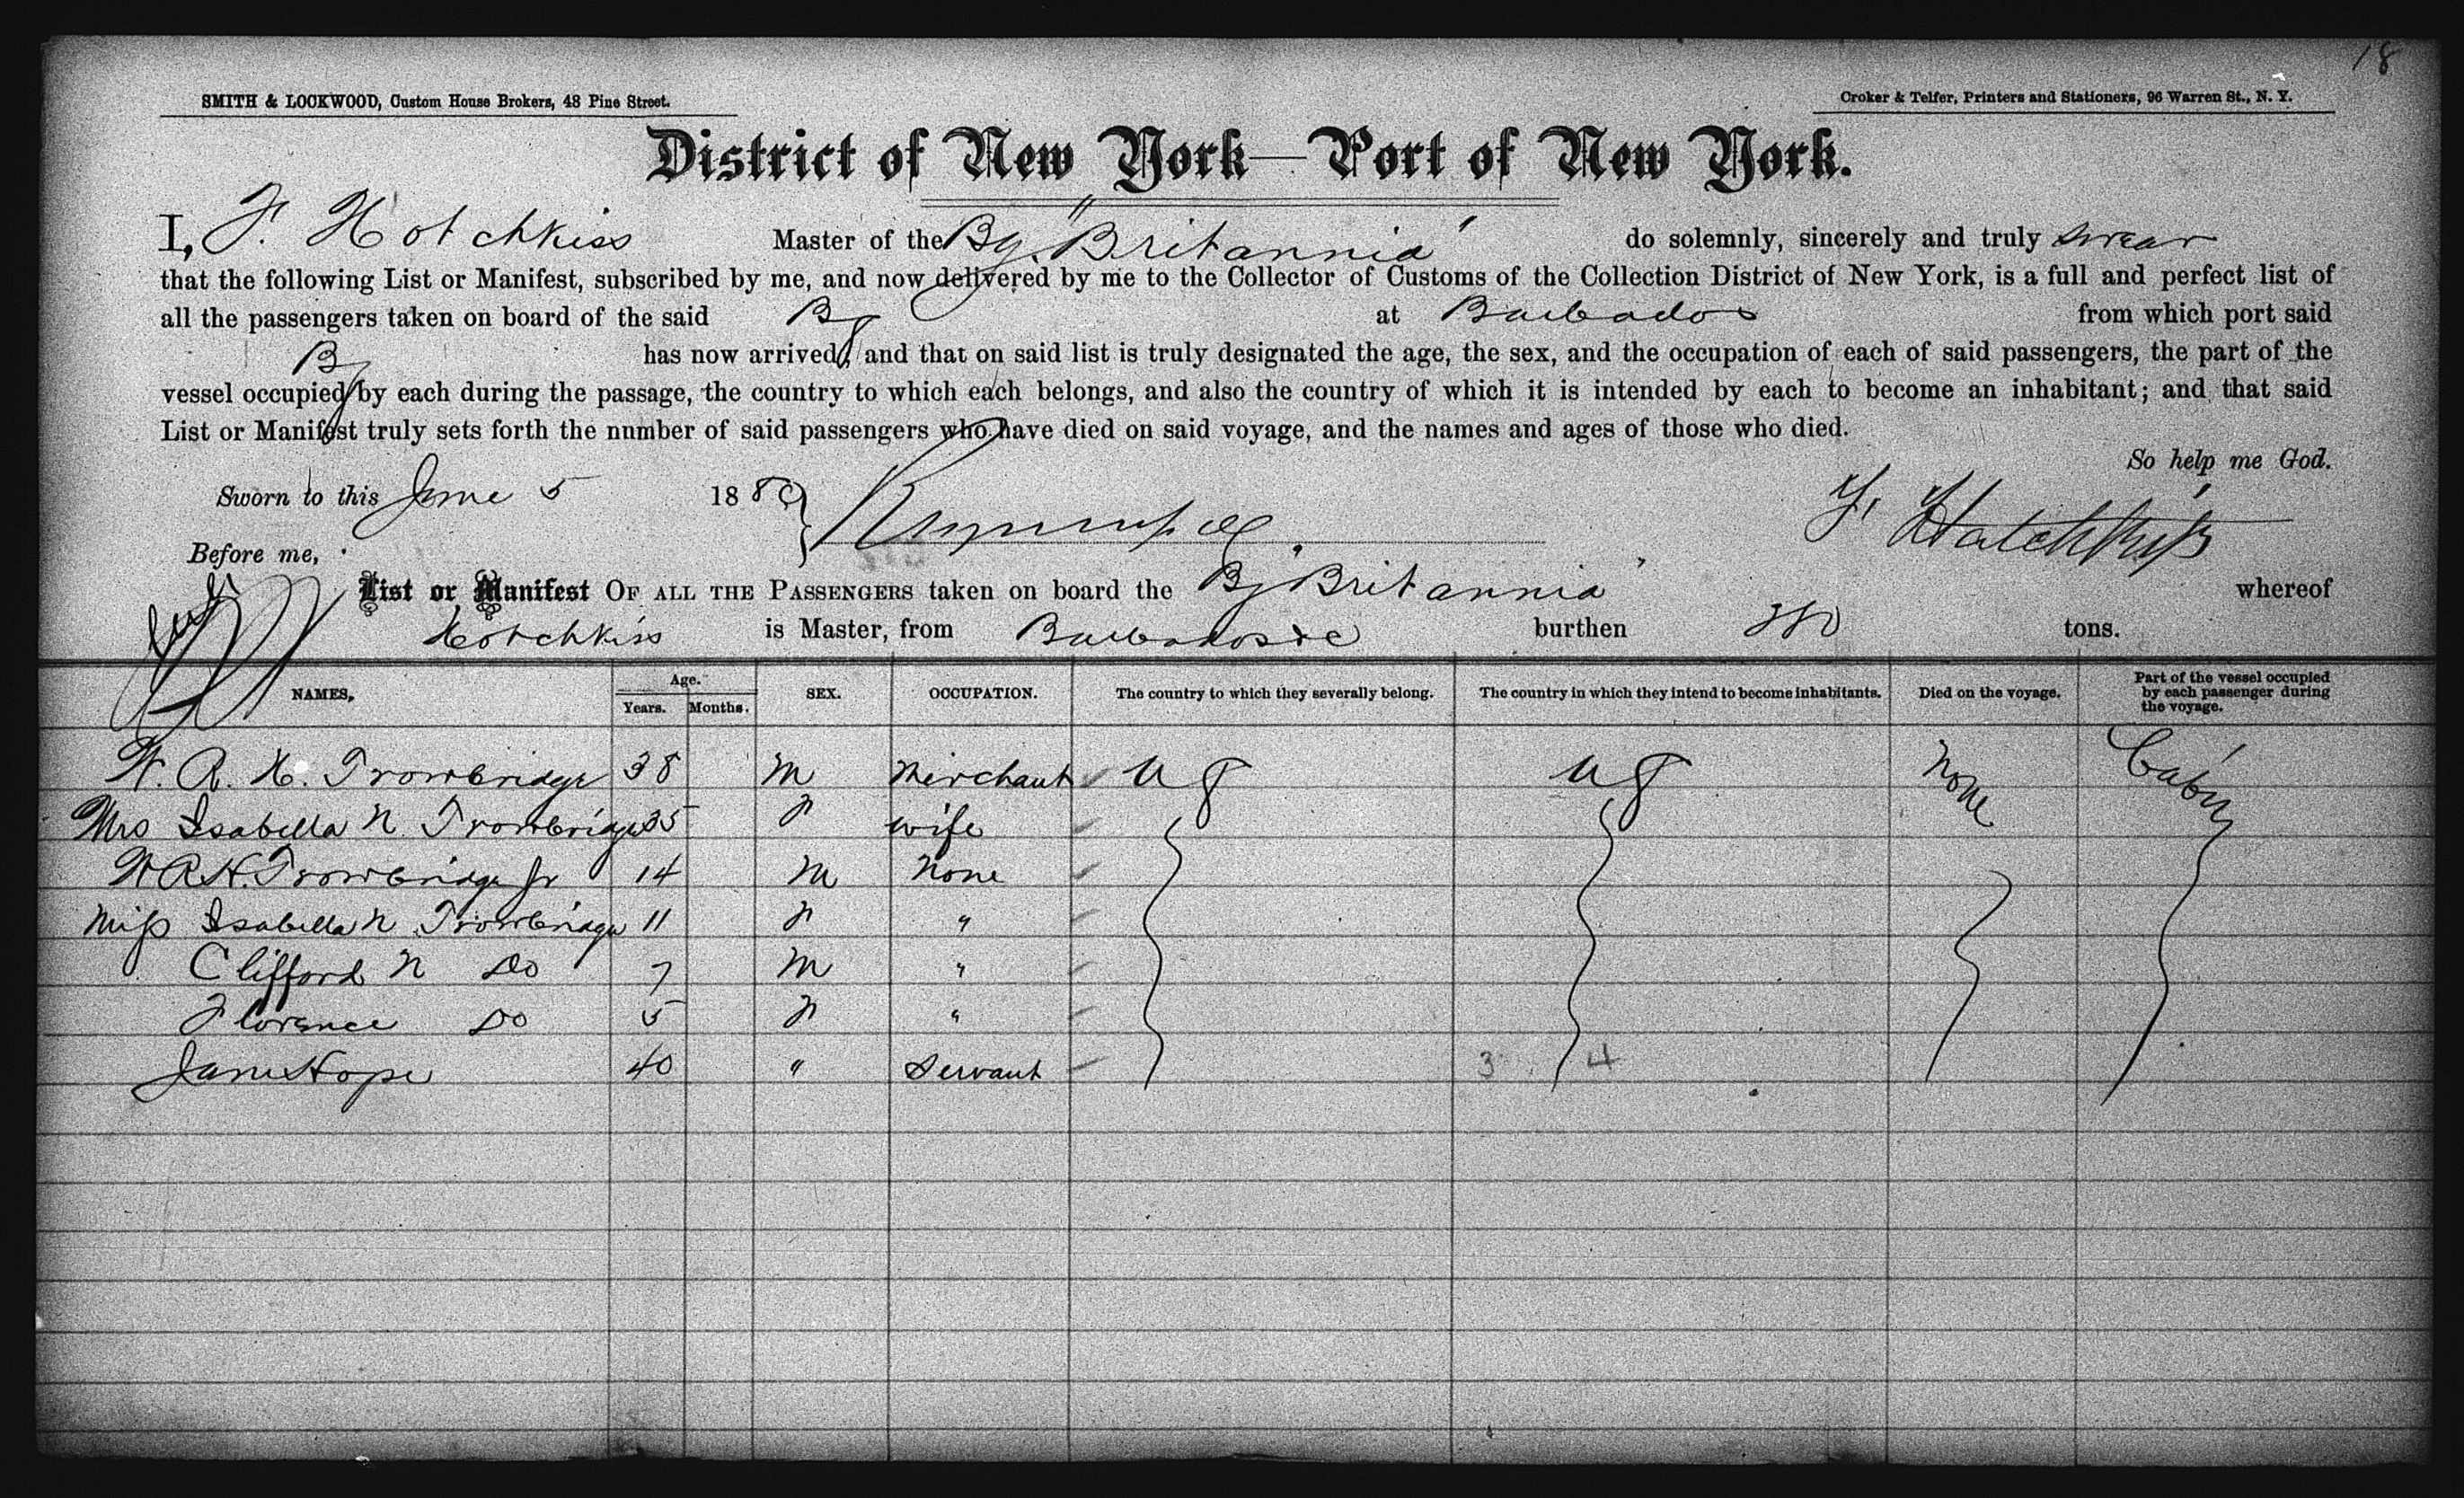 18
SMITH & LOCKWOOD, Custom House Brokers, 48 Pine Street.
Croker & Telfer, Printers and Stationers, 96 Warren St., N. Y.
District of New York—Port of New York.
I, F. Hotchkiss Master of the Bg. "Britannia" do solemnly, sincerely and truly swear
that the following List or Manifest, subscribed by me, and now delivered by me to the Collector of Customs of the Collection District of New York, is a full and perfect list of
all the passengers taken on board of the said Bg at Barbados from which port said
Bg has now arrived, and that on said list is truly designated the age, the sex, and the occupation of each of said passengers, the part of the
vessel occupied by each during the passage, the country to which each belongs, and also the country of which it is intended by each to become an inhabitant; and that said
List or Manifest truly sets forth the number of said passengers who have died on said voyage, and the names and ages of those who died.
So help me God.
Sworn to this June 5 1880
F. Hotchkiss
Before me,
List or Manifest OF ALL THE PASSENGERS taken on board the Bg "Britannia" whereof
Hotchkiss is Master, from Barbados &c burthen tons.
NAMES. Age. Years. Months. SEX. OCCUPATION. The country to which they severally belong. The country in which they intend to become inhabitants. Died on the voyage. Part of the vessel occupied by each passenger during the voyage.
W. R. H. Trowbridge 38 M Merchant U S U S None Cabin
Mrs Isabella N Trowbridge 35 F wife
W R H. Trowbridge Jr 14 M None
Miss Isabella N Trowbridge 11 F "
Clifford N Do 7 M "
Florence Do 5 F "
Jane Hope 40 " Servant 3 4